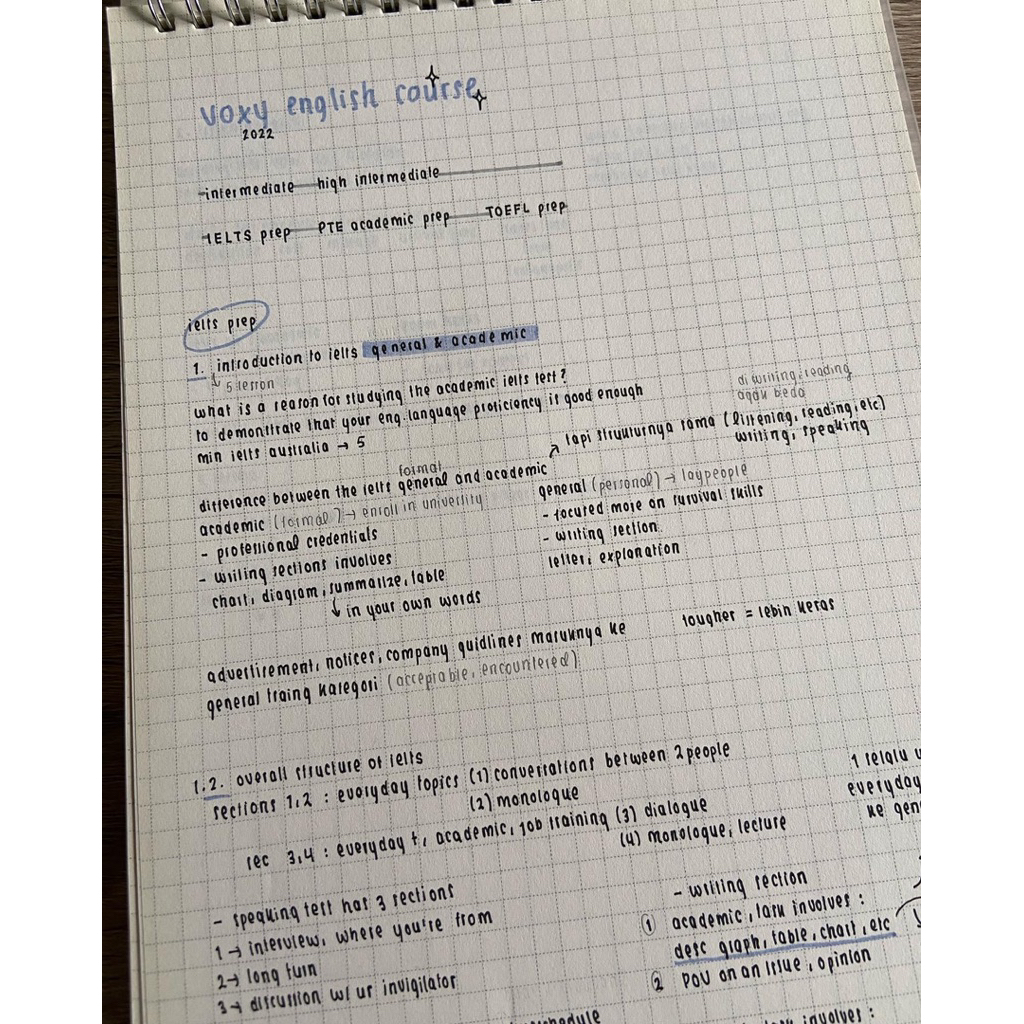 voxy english course
2022
intermediate high intermediate
IELTS prep PTE academic prep TOEFL prep
ielts prep
1. introduction to ielts general & academic
↳ 5 lesson
what is a reason for studying the academic ielts test?
to demonstrate that your eng language proficiency is good enough
min ielts australia → 5
di writing, reading
agak beda
tapi strukturnya sama (listening, reading, etc)
writing, speaking
formal
difference between the ielts general and academic
academic (formal) → enroll in university
- professional credentials
- writing sections involves
chart, diagram, summarize, table
↳ in your own words
general (personal) → laypeople
- focused more on survival skills
- writing section
letter, explanation
advertisement, notices, company guidlines masuknya ke
general traing kategori (acceptable, encountered)
tougher = lebih keras
1.2. overall structure of ielts
sections 1,2 : everyday topics (1) conversations between 2 people
(2) monologue
sec 3,4 : everyday t, academic, job training (3) dialogue
(4) monologue, lecture
1 selalu
everyday
ke gen
- speaking test has 3 sections
1 → interview, where you're from
2 → long turn
3 → discussion w/ ur invigilator
- writing section
① academic, task involves :
desc graph, table, chart, etc
② POV on an issue, opinion
involves :